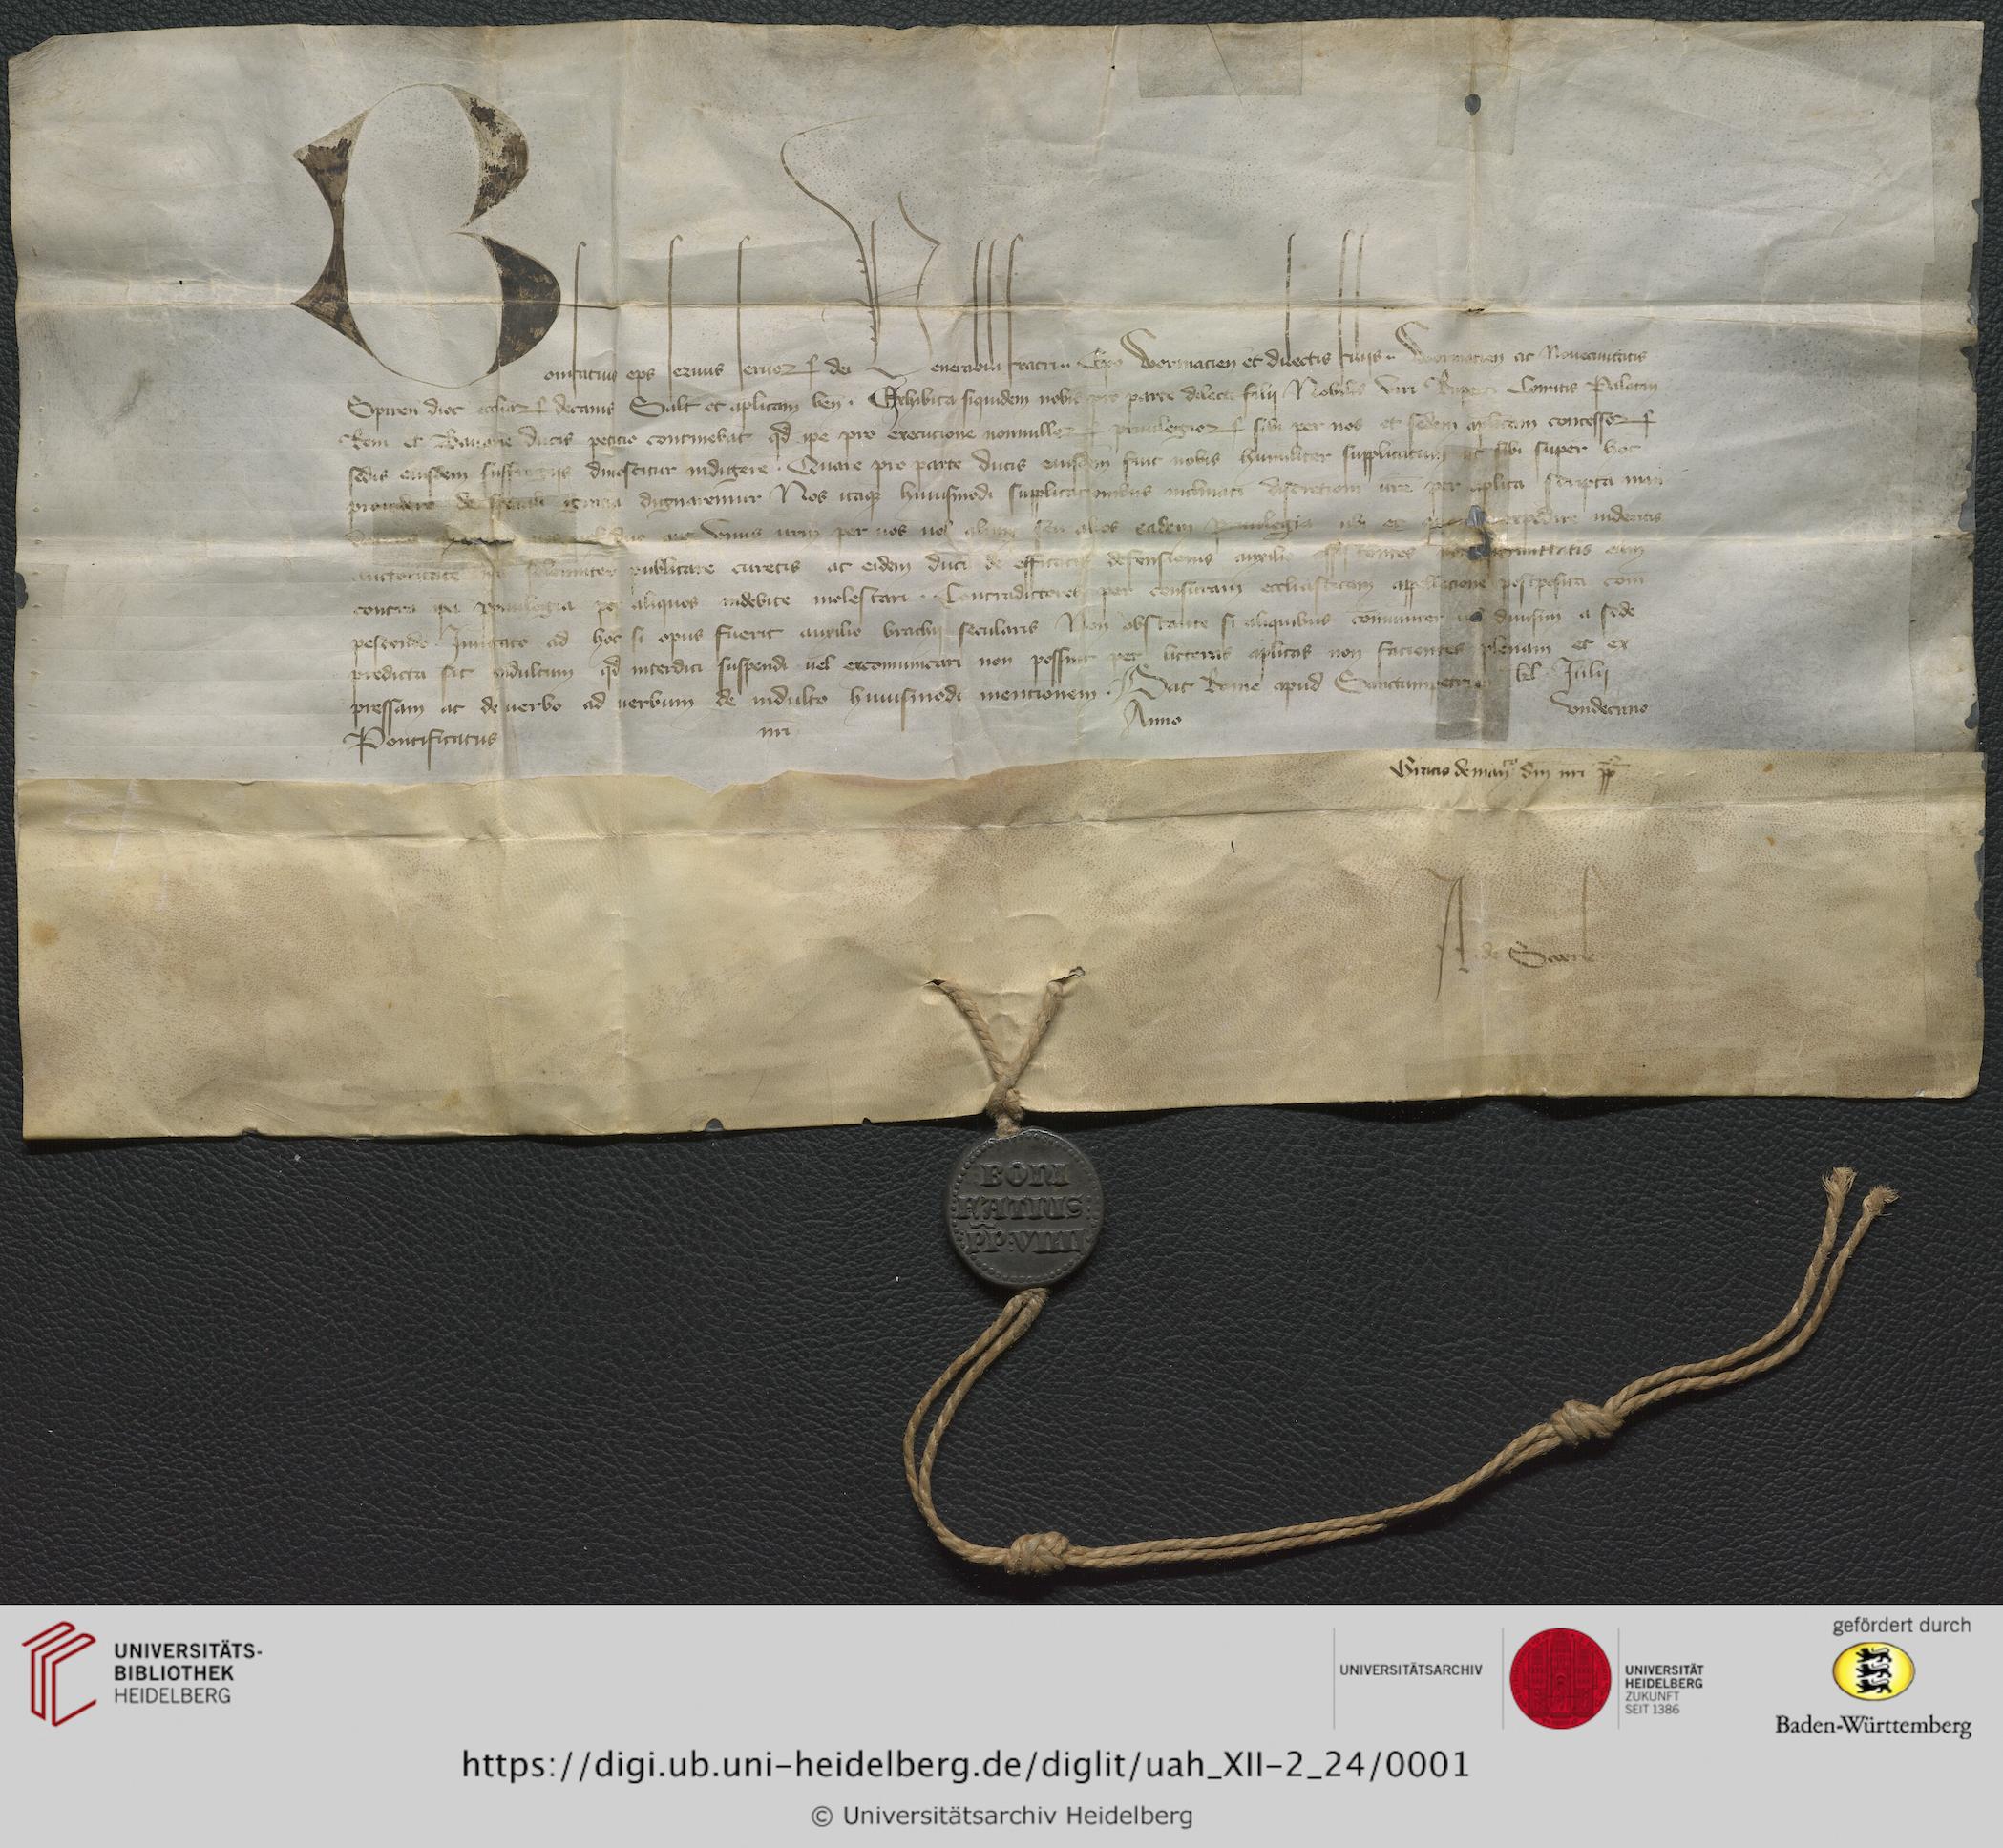 Bonifatius eps servus servorum dei Venerabili fratri Epo Wormacien et dilectis filijs Wormacien ac Novecivitatis
Spiren dioc eccliarum decanis Salt et aplicam ben. Exhibita siquidem nobis pro parte dilecti filij Nobilis viri Ruperti Comitis Palatin
Reni et Bavarie ducis peticio continebat qd ipe pro execucione nonnullorum privilegiorum sibi per nos et sedem aplicam concessorum
sedis eiusdem suffragiis dinoscitur indigere. Quare pro parte ducis eiusdem fuit nobis humiliter supplicatum ut sibi super hoc
providere de gracia dignaremur Nos itaqz huiusmodi supplicacionibus inclinati discretioni vre per aplica scripta man
aut unus vrm per vos vel alium seu alios eadem privilegia ubi et expedire videritis
auctoritate solenniter publicare curetis ac eidem duci de efficacis defensionis auxilio assistentes non permittatis eum
contra ipa privilegia per aliquos indebite molestari. Contradictores per censuram ecclesiasticam appellacione postposita com
pescendo Invocato ad hoc si opus fuerit auxilio brachij secularis Non obstante si aliquibus communiter vel divisim a sede
predicta sit indultum qd interdici suspendi vel excomunicari non possint per litteras aplicas non facientes plenam et ex
pressam ac de verbo ad verbum de indulto huiusmodi mentionem. Dat Rome apud Sanctumpetrum kl Julij
Pontificatus nri Anno undecimo
Gratis de man dni nri pp
A de
BONI
FATIUS
PP:VIIII
UNIVERSITÄTS-
BIBLIOTHEK
HEIDELBERG
UNIVERSITÄTSARCHIV
UNIVERSITÄT
HEIDELBERG
ZUKUNFT
SEIT 1386
gefördert durch
Baden-Württemberg
https://digi.ub.uni-heidelberg.de/diglit/uah_XII-2_24/0001
© Universitätsarchiv Heidelberg